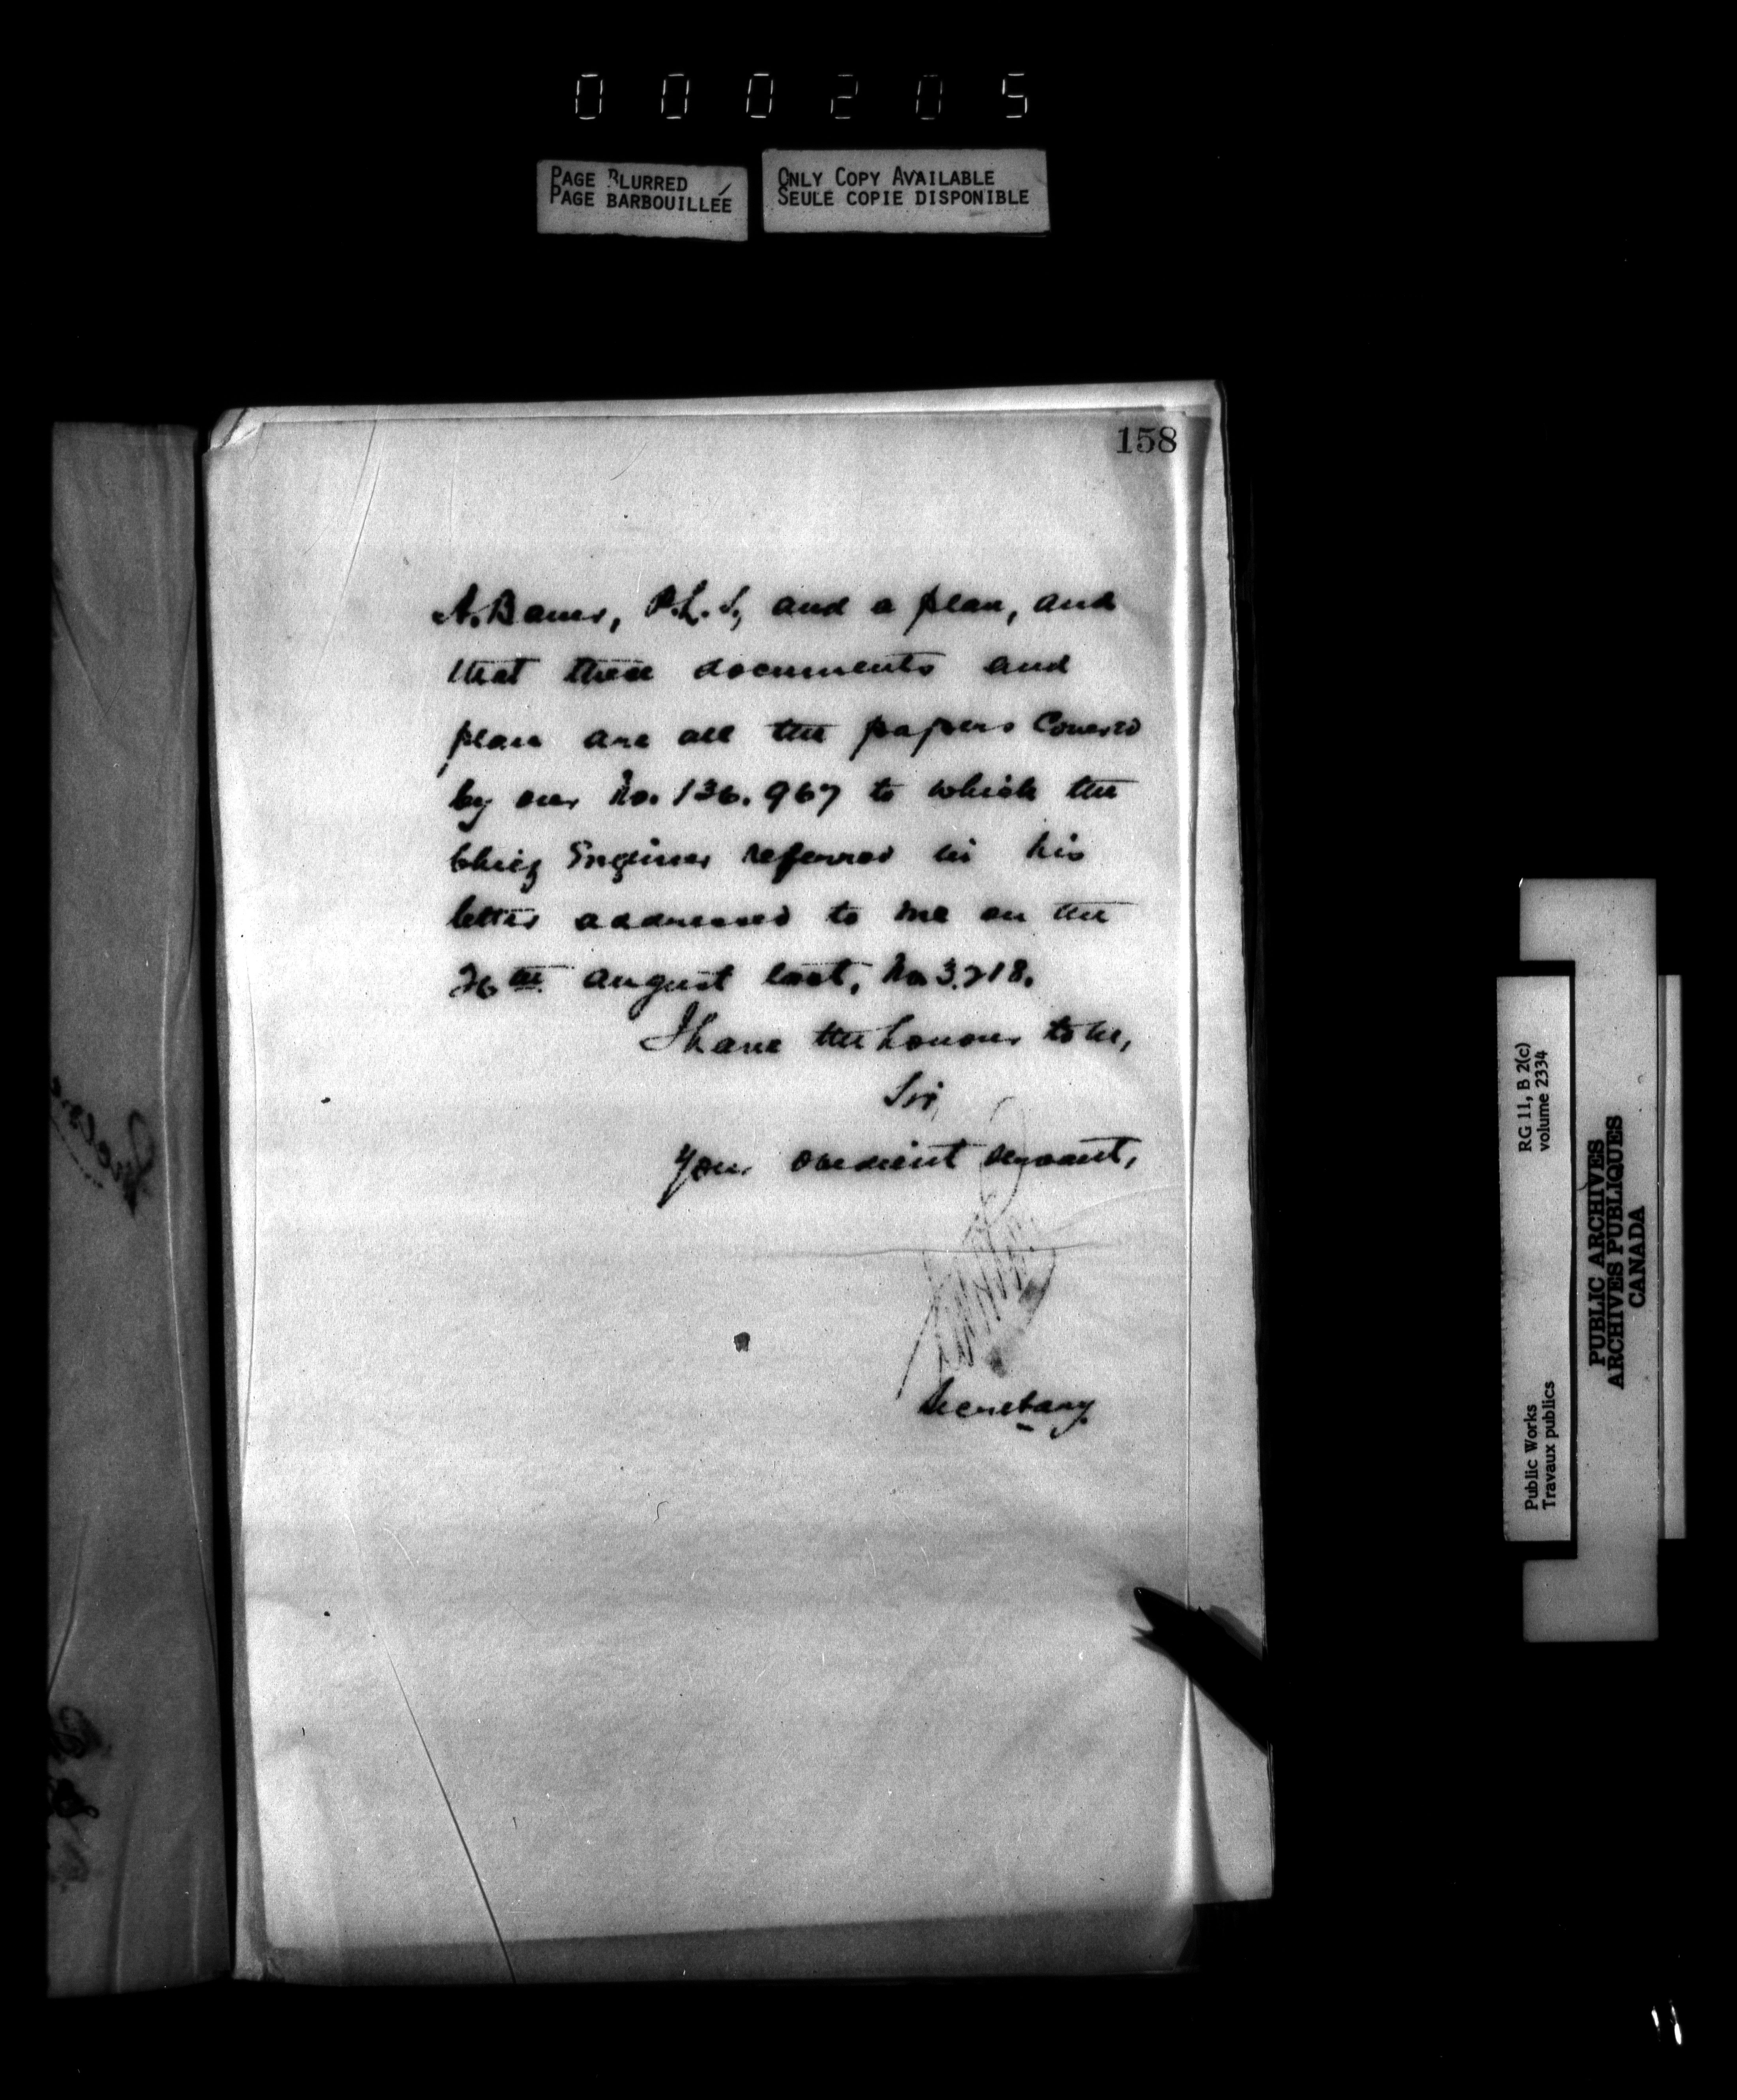 000205
PAGE BLURRED
PAGE BARBOUILLÉE
ONLY COPY AVAILABLE
SEULE COPIE DISPONIBLE
158
P.L.S, and a plan, and
that these documents and
plan are all the papers covered
by our No. 136.967 to which the
Chief Engineer referred in his
letter addressed to me on the
26th August last, No 3.218.
I have the honour to be,
Sir,
Your obedient servant,
Secretary
RG 11, B 2(c)
volume 2334
Public Works
Travaux publics
PUBLIC ARCHIVES
ARCHIVES PUBLIQUES
CANADA